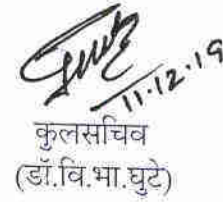 11.12.19
कुलसचिव
(डॉ.वि.भा.घुटे)